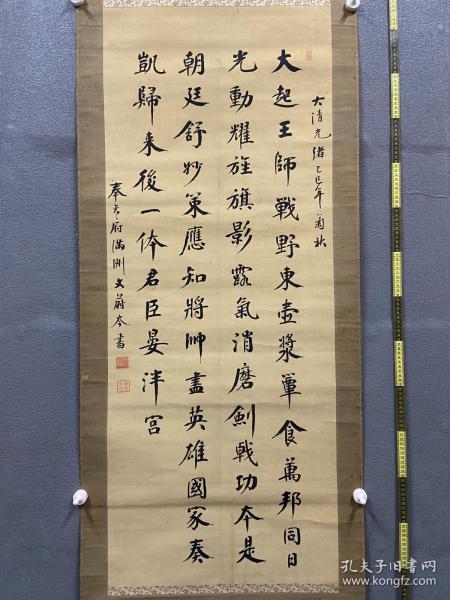 大清光緒乙巳年菊秋
大起王師戰野東壺漿簞食萬邦同日
光動耀旌旗影露氣消磨劍戟功本是
朝廷舒妙策應知將帥盡英雄國家奏
凱歸来後一体君臣宴泮宮
奉天府满洲文蔚岑書
孔夫子旧书网
www.kongfz.com